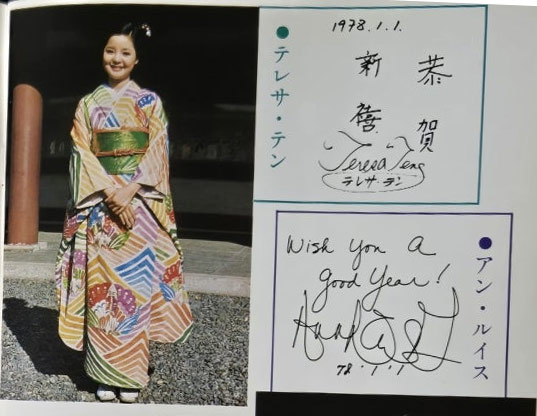 ●テレサ・テン
1978.1.1.
恭賀
新禧
Teresa Teng
テレサ・テン
●アン・ルイス
Wish You a
good Year!
78.1.1